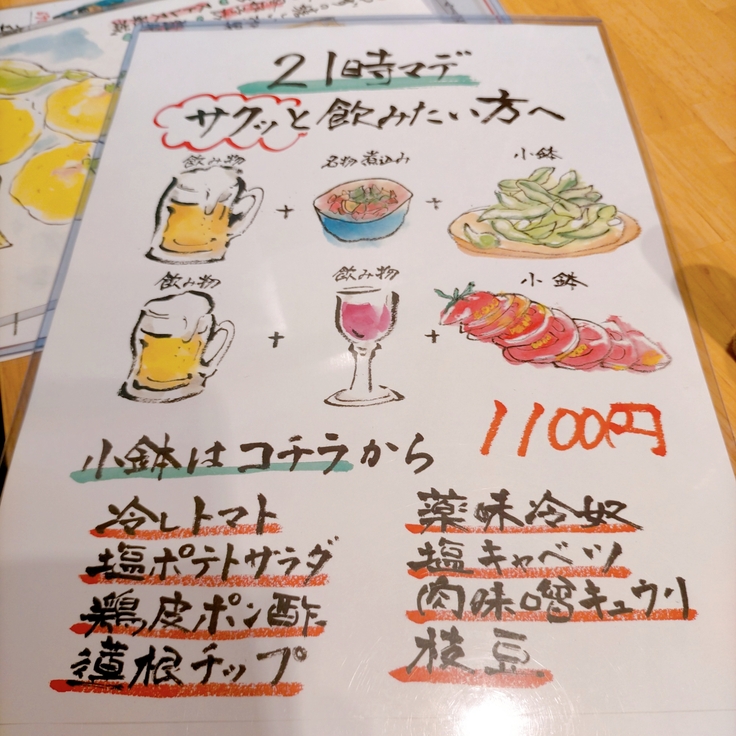 21時マデ
サクッと飲みたい方へ
飲み物 名物煮込み 小鉢
+ +
飲み物 飲み物 小鉢
+ +
1100円
小鉢はコチラから
冷しトマト 薬味冷奴
塩ポテトサラダ 塩キャベツ
鶏皮ポン酢 肉味噌キュウリ
蓮根チップ 枝豆